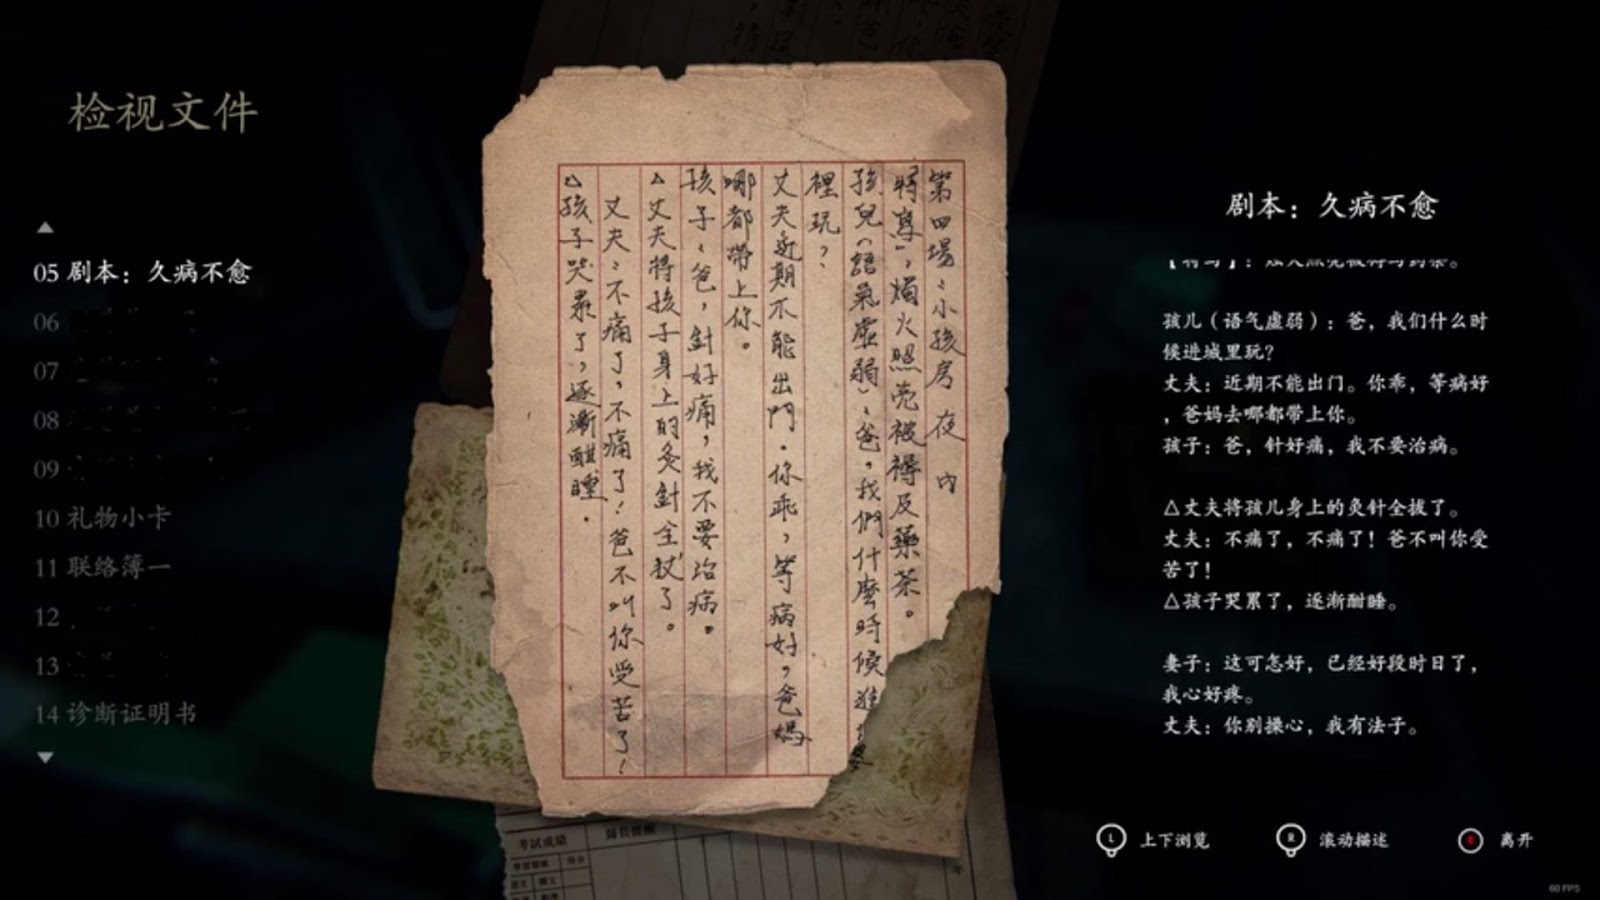 检视文件
05 剧本：久病不愈
06
07
08
09
10 礼物小卡
11 联络簿一
12
13
14 诊断证明书
第四場：小孩房 夜 内
特寫，燭火照亮被褥及藥茶。
孩兒（語氣虛弱）：爸，我們什麼時候進
裡玩？
丈夫近期不能出門．你乖，等病好，爸媽
哪都帶上你。
孩子：爸，針好痛，我不要治病。
△丈夫將孩子身上的灸針全拔了。
丈夫：不痛了，不痛了！爸不叫你受苦了！
△孩子哭累了，逐漸酣睡．
考試成績
師長提醒
学習領域
得分
語文
國文
年
剧本：久病不愈
孩儿（语气虚弱）：爸，我们什么时
候进城里玩？
丈夫：近期不能出门。你乖，等病好
，爸妈去哪都带上你。
孩子：爸，针好痛，我不要治病。
△丈夫将孩儿身上的灸针全拔了。
丈夫：不痛了，不痛了！爸不叫你受
苦了！
△孩子哭累了，逐渐酣睡。
妻子：这可怎好，已经好段时日了，
我心好疼。
丈夫：你别操心，我有法子。
L 上下浏览
R 滚动描述
离开
60 FPS